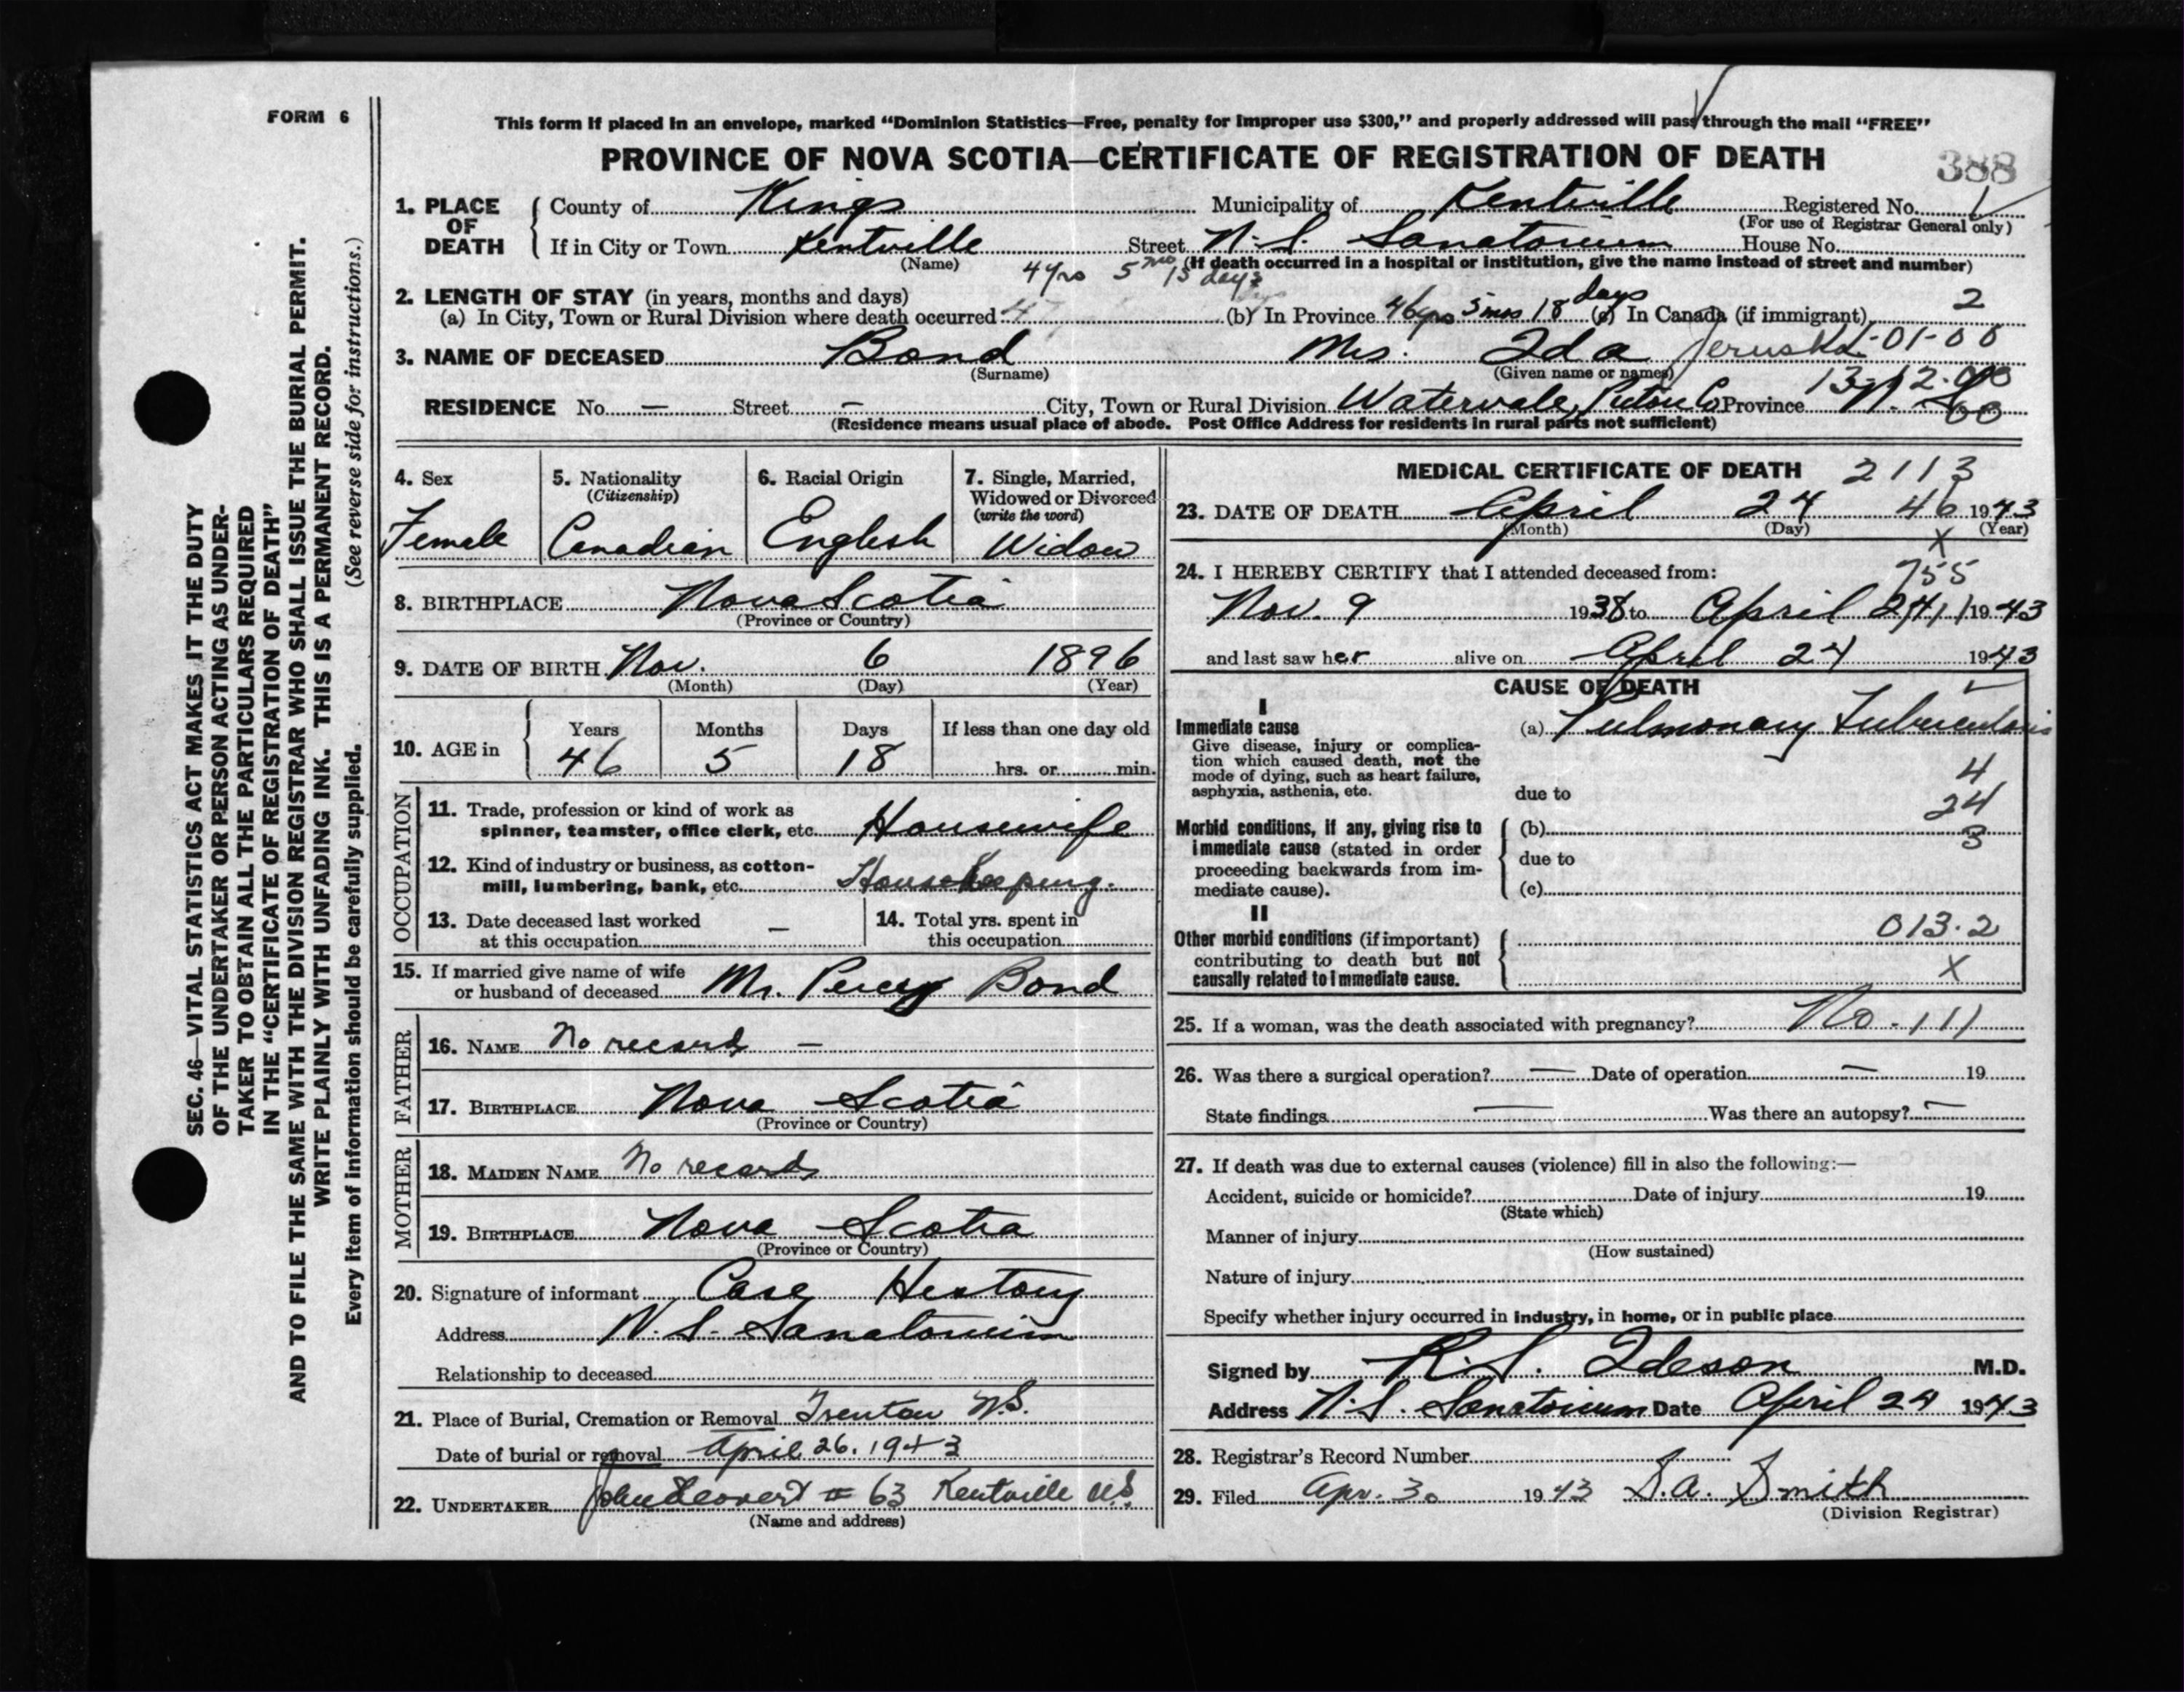 FORM 6
This form if placed in an envelope, marked “Dominion Statistics—Free, penalty for improper use $300,” and properly addressed will pass through the mail “FREE”
PROVINCE OF NOVA SCOTIA—CERTIFICATE OF REGISTRATION OF DEATH
388
1. PLACE OF DEATH
County of Kings Municipality of Kentville Registered No. 1
(For use of Registrar General only)
If in City or Town Kentville Street N.S. Sanatorium House No.
(Name) (If death occurred in a hospital or institution, give the name instead of street and number)
4 yrs 5 mo 15 days
2. LENGTH OF STAY (in years, months and days)
(a) In City, Town or Rural Division where death occurred (b) In Province 46 yrs 5 mos 18 days (c) In Canada (if immigrant) 2
3. NAME OF DECEASED Bond Mrs. Ida Jerusha 1-01-00
(Surname) (Given name or names)
13-12-00
RESIDENCE No. — Street — City, Town or Rural Division Watervale, Pictou Co Province N.S. 00
(Residence means usual place of abode. Post Office Address for residents in rural parts not sufficient)
4. Sex Female
5. Nationality (Citizenship) Canadian
6. Racial Origin English
7. Single, Married, Widowed or Divorced (write the word) Widow
8. BIRTHPLACE Nova Scotia
(Province or Country)
9. DATE OF BIRTH Nov. 6 1896
(Month) (Day) (Year)
10. AGE in Years 46 Months 5 Days 18 If less than one day old
hrs. or min.
OCCUPATION
11. Trade, profession or kind of work as
spinner, teamster, office clerk, etc. Housewife
12. Kind of industry or business, as cotton-
mill, lumbering, bank, etc. Housekeeping.
13. Date deceased last worked
at this occupation —
14. Total yrs. spent in
this occupation
15. If married give name of wife
or husband of deceased Mr. Percy Bond
FATHER
16. NAME No record —
17. BIRTHPLACE Nova Scotia
(Province or Country)
MOTHER
18. MAIDEN NAME No record
19. BIRTHPLACE Nova Scotia
(Province or Country)
20. Signature of informant Case History
Address N.S. Sanatorium
Relationship to deceased
21. Place of Burial, Cremation or Removal Trenton N.S.
Date of burial or removal April 26, 1943
22. UNDERTAKER # 63 Kentville N.S.
(Name and address)
MEDICAL CERTIFICATE OF DEATH 2113
23. DATE OF DEATH April 24 46 1943
(Month) (Day) (Year)
x
24. I HEREBY CERTIFY that I attended deceased from: 755
Nov. 9 1938 to April 24 1943
and last saw her alive on April 24 1943
CAUSE OF DEATH
I
Immediate cause (a) Pulmonary Tuberculosis
Give disease, injury or complica-
tion which caused death, not the
mode of dying, such as heart failure, 4
asphyxia, asthenia, etc. due to
24
Morbid conditions, if any, giving rise to (b) 3
immediate cause (stated in order
proceeding backwards from im- due to
mediate cause). (c)
II
Other morbid conditions (if important) 013.2
contributing to death but not
causally related to immediate cause. X
25. If a woman, was the death associated with pregnancy? No. 111
26. Was there a surgical operation? — Date of operation — 19
State findings — Was there an autopsy? —
27. If death was due to external causes (violence) fill in also the following:—
Accident, suicide or homicide? Date of injury 19
(State which)
Manner of injury
(How sustained)
Nature of injury
Specify whether injury occurred in industry, in home, or in public place
Signed by R.S. Ideson M.D.
Address N.S. Sanatorium Date April 24 1943
28. Registrar's Record Number
29. Filed Apr. 30 1943 S.A. Smith
(Division Registrar)
SEC. 46—VITAL STATISTICS ACT MAKES IT THE DUTY
OF THE UNDERTAKER OR PERSON ACTING AS UNDER-
TAKER TO OBTAIN ALL THE PARTICULARS REQUIRED
IN THE “CERTIFICATE OF REGISTRATION OF DEATH”
AND TO FILE THE SAME WITH THE DIVISION REGISTRAR WHO SHALL ISSUE THE BURIAL PERMIT.
WRITE PLAINLY WITH UNFADING INK. THIS IS A PERMANENT RECORD.
Every item of information should be carefully supplied. (See reverse side for instructions.)